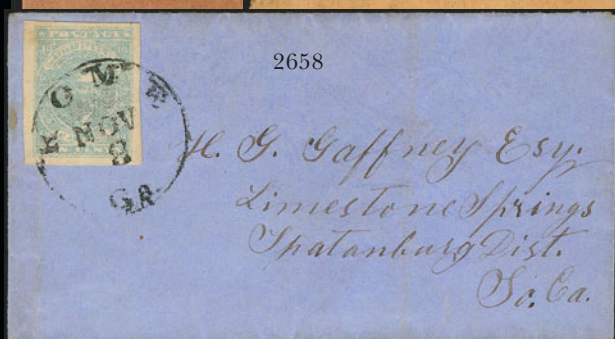 POSTAGE
2658
ROME
NOV
8
GA.
H. G. Gaffney Esq.
Limestone Springs
Spatanburg Dist.
So. Ca.